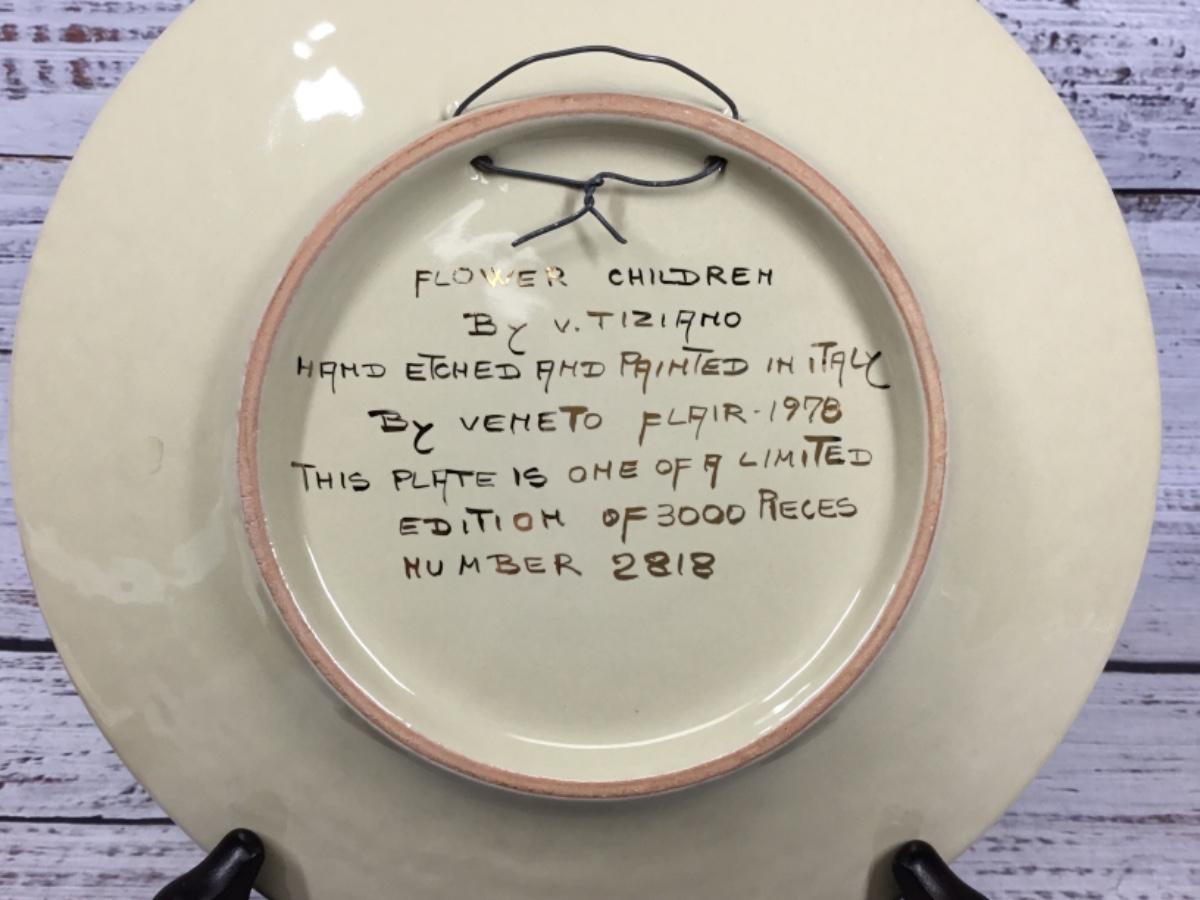 FLOWER CHILDREN
By V. TIZIANO
HAND ETCHED AND PAINTED IN ITALY
By VENETO FLAIR-1978
THIS PLATE IS ONE OF A LIMITED
EDITION OF 3000 PIECES
NUMBER 2818